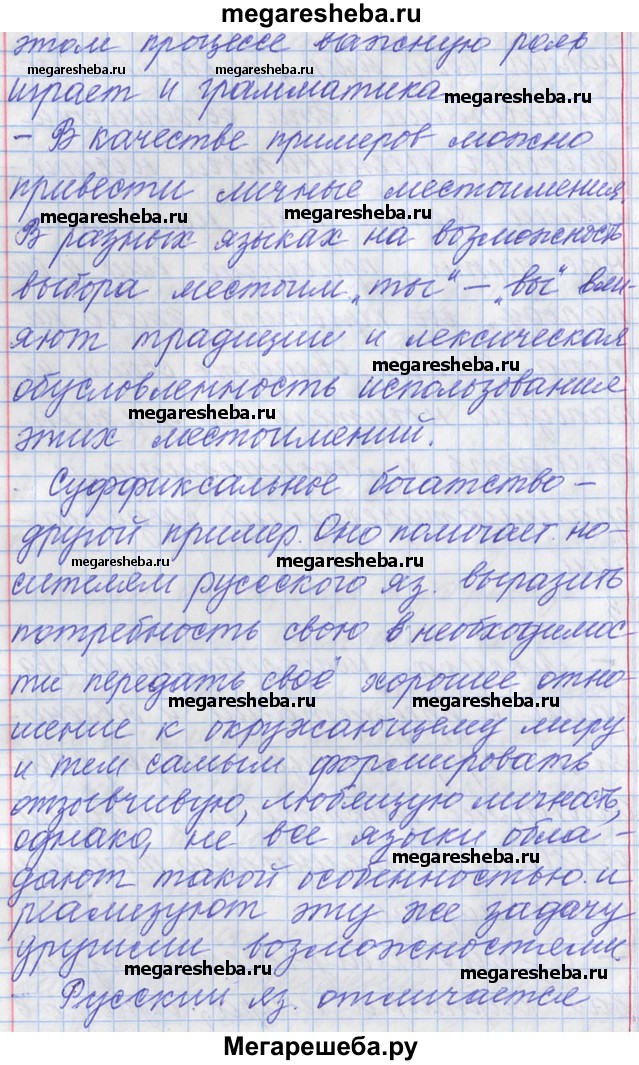 megaresheba.ru
этом процессе важную роль
megaresheba.ru megaresheba.ru
играет и грамматика
megaresheba.ru
- В качестве примеров можно
привести личные местоимения.
megaresheba.ru megaresheba.ru
В разных языках на возможность
выбора местоим. „ты" – „вы" вли-
яют традиции и лексическая
megaresheba.ru
обусловленность использования
megaresheba.ru
этих местоимений.
Суффиксальное богатство -
другой пример. Оно помогает но-
megaresheba.ru megaresheba.ru
сителям русского яз. выразить
потребность свою в необходимос-
ти передать своё хорошее отно-
megaresheba.ru megaresheba.ru
шение к окружающему миру
и тем самым формировать
отзывчивую, любящую личность,
однако, не все языки обла-
megaresheba.ru
дают такой особенностью и
реализуют эту же задачу
другими возможностями
megaresheba.ru megaresheba.ru
Русский яз. отличается
Мегарешеба.ру